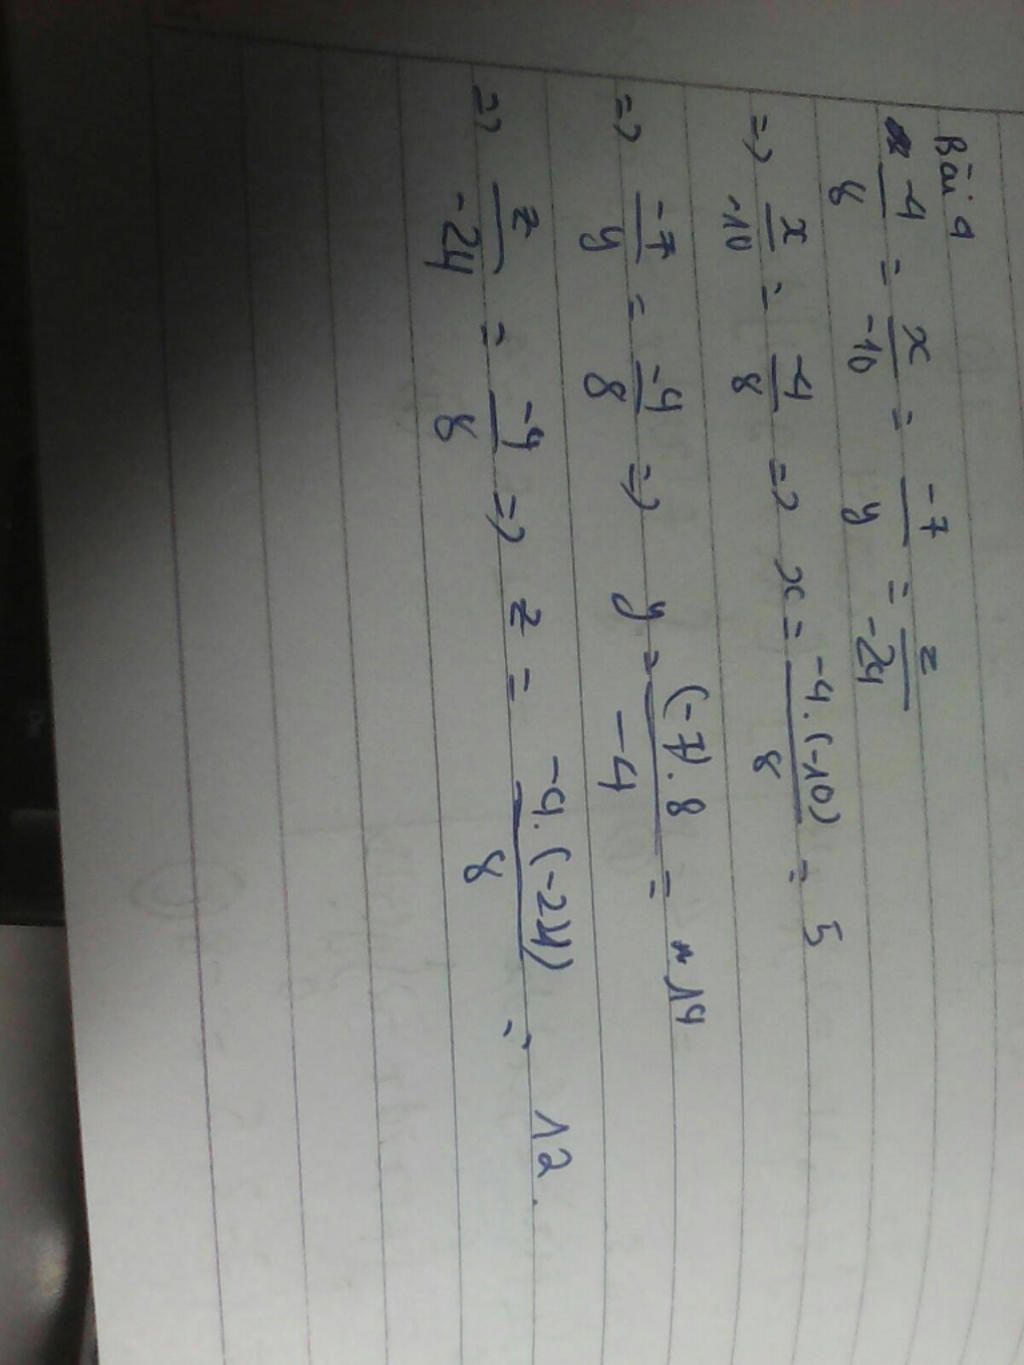 Bài 4
-4/8 = x/-10 = -7/y = z/-24
=> x/-10 = -4/8 => x = -4.(-10)/8 = 5
=> -7/y = -4/8 => y = (-7).8/-4 = 14
=> z/-24 = -4/8 => z = -4.(-24)/8 = 12.